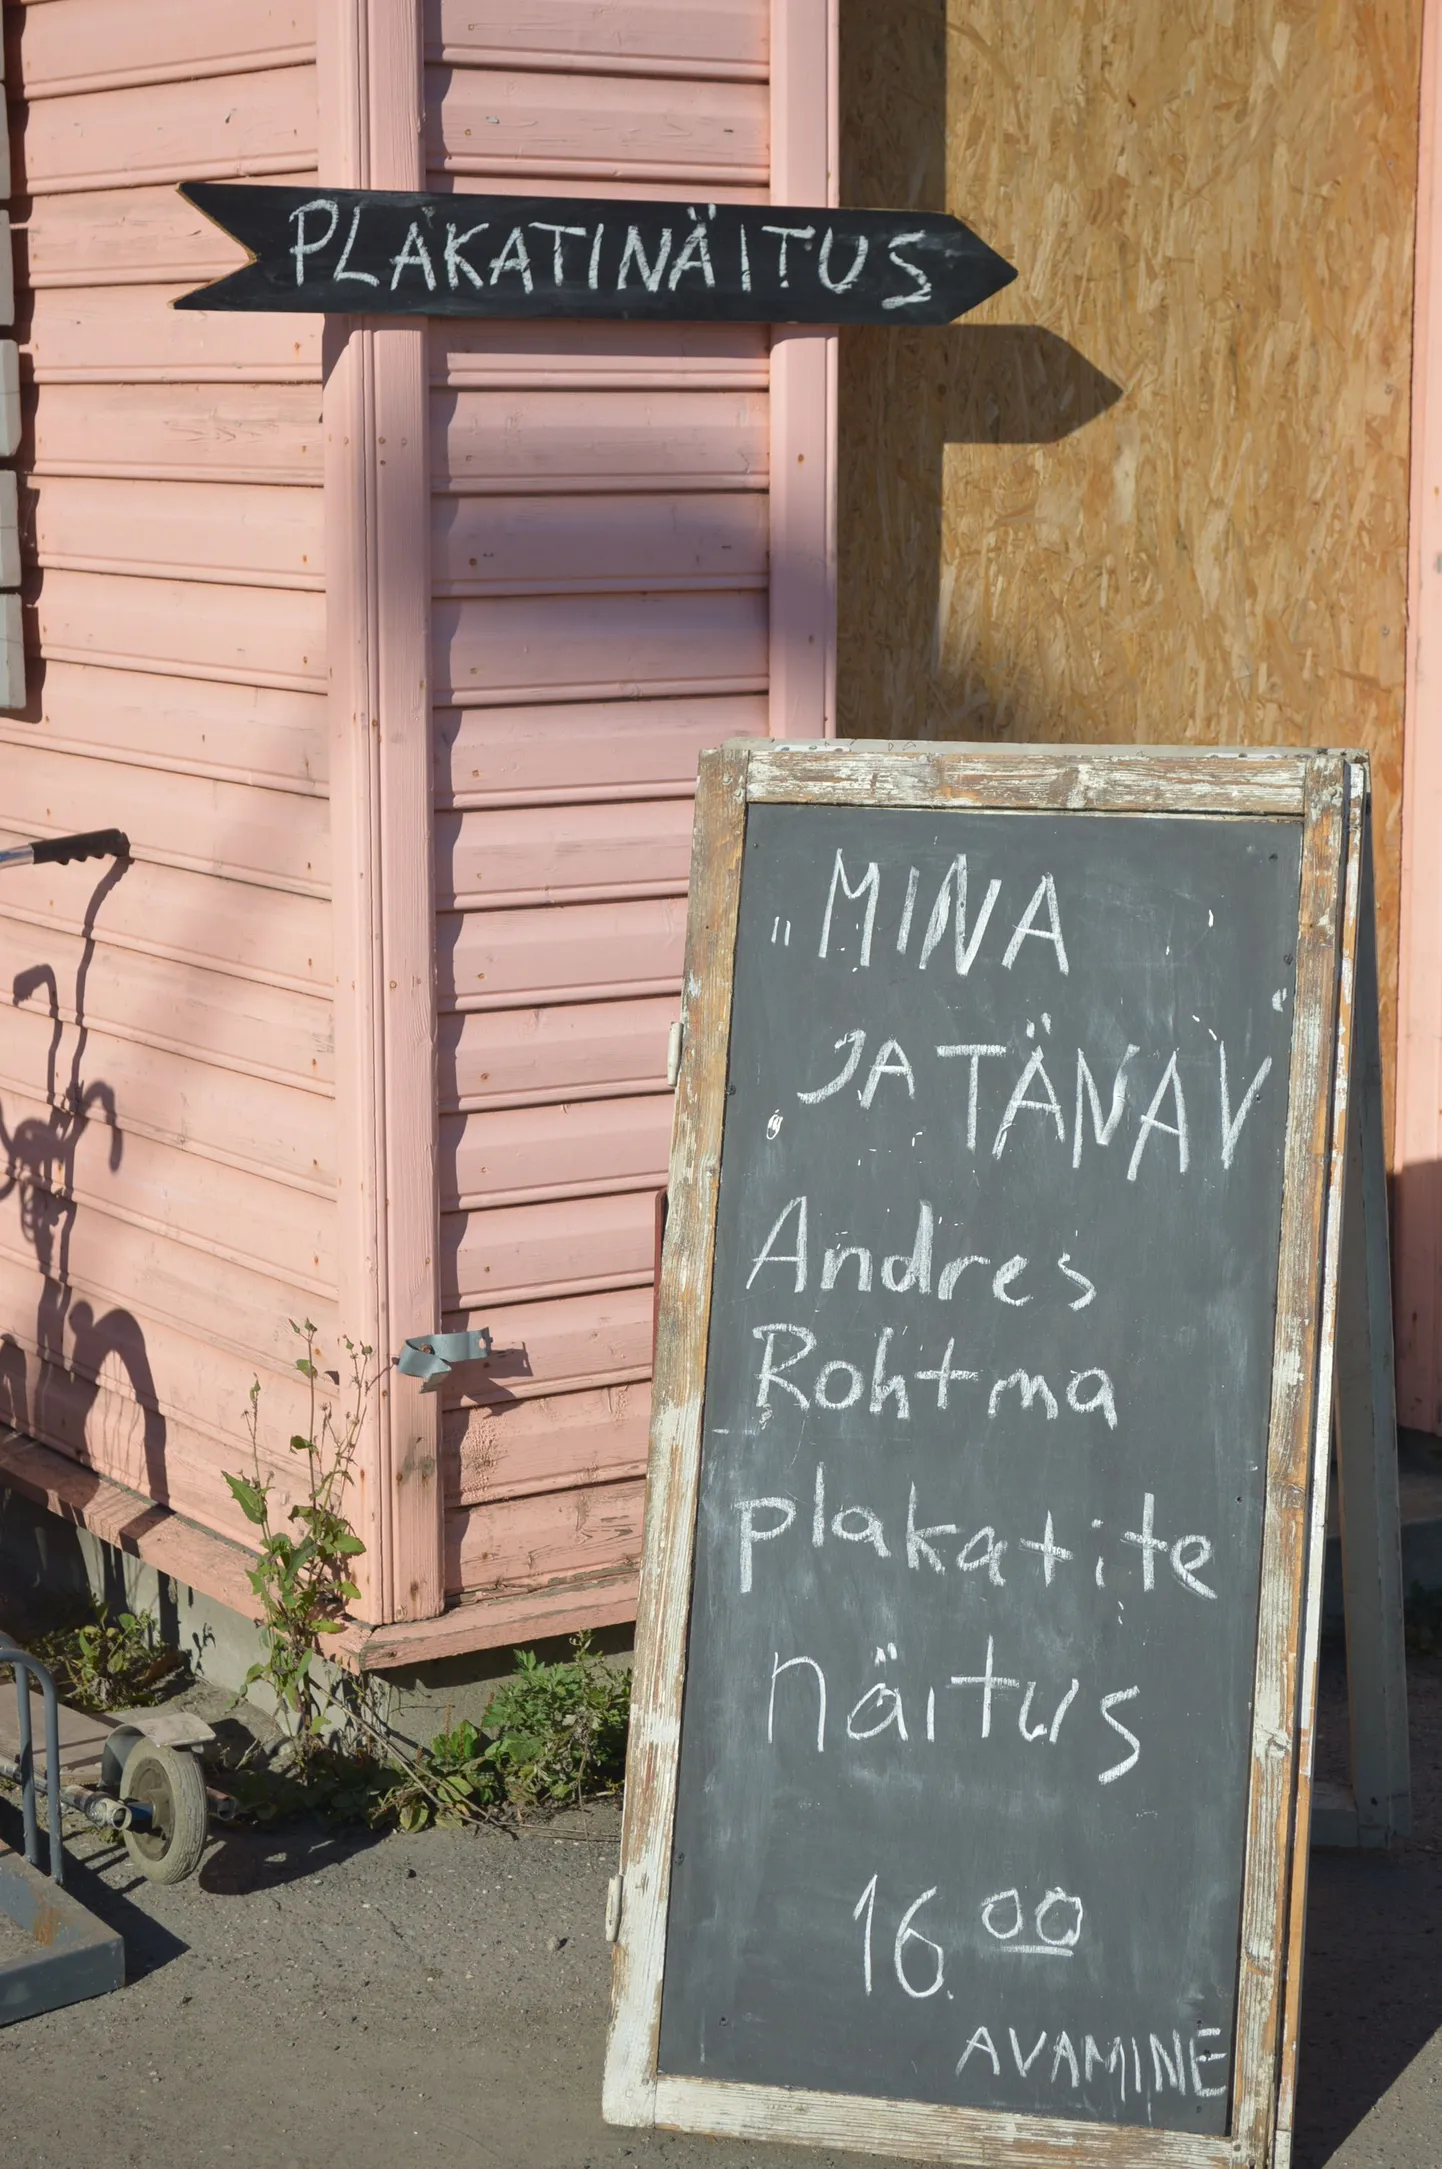 PLAKATINÄITUS
"MINA
JA TÄNAV
Andres
Rohtma
plakatite
näitus
16 00
AVAMINE